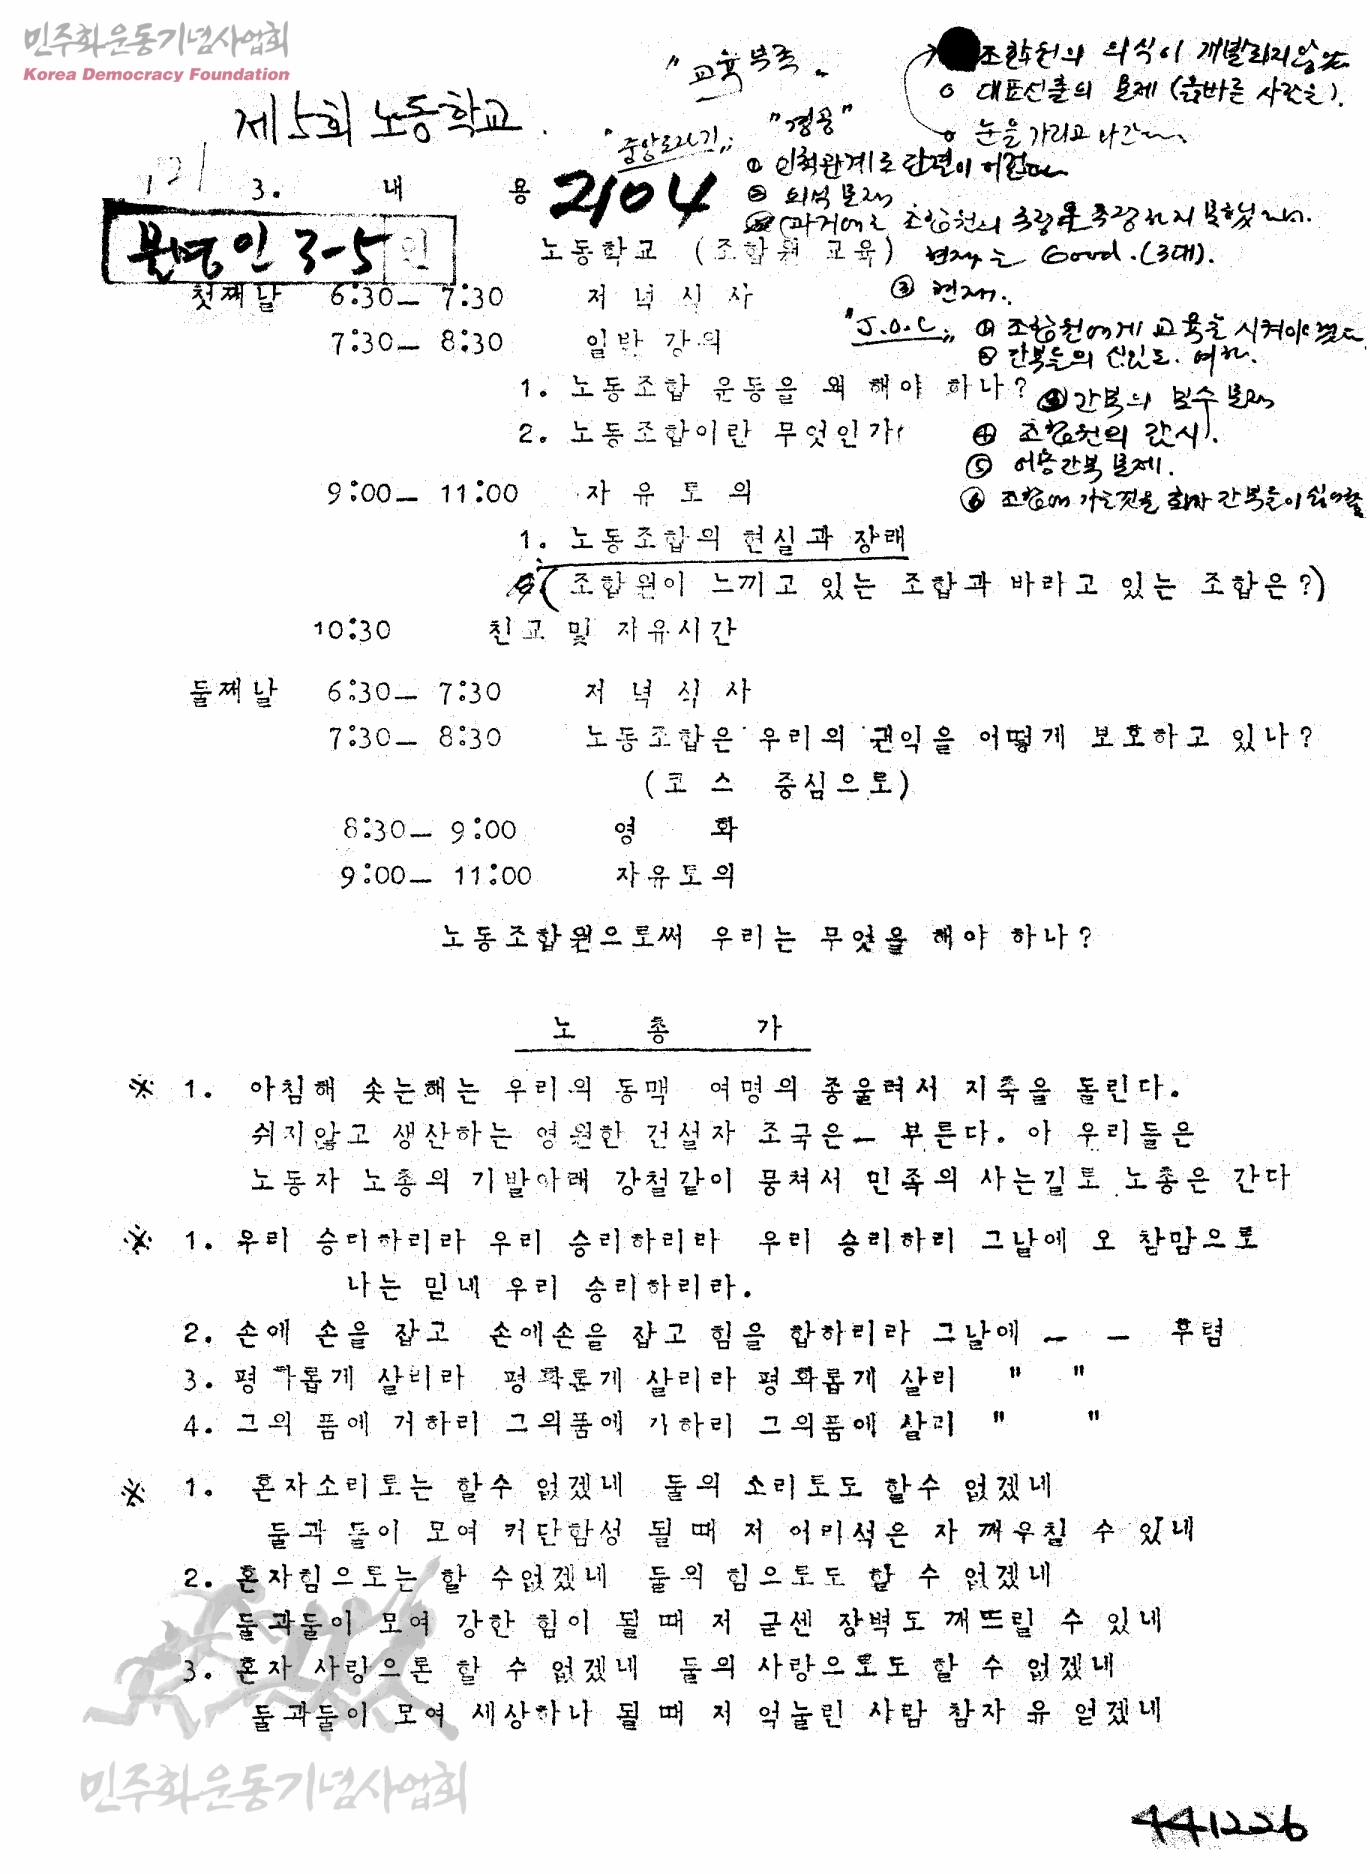 민주화운동기념사업회
Korea Democracy Foundation
제5회 노동학교.
"교육부족"
조합원의 의식이 개발되지 않
o 대표선출의 문제 (올바른 사람을).
o 눈을 가리고 나간
"중앙로라기"
"경공"
① 인척관계로 단결이 어렵다
② 의식 문제
(과거에는 조합원의 을 하지 못했으나.
현재는 Good. (3대).
③ 현재..
"J.O.C" ① 조합원에게 교육을 시켜야
② 간부들의 신임도. 여하.
③ 간부의 보수 문제
④ 조합원의 감시.
⑤ 어용간부 문제.
⑥ 조합에 가는것을 회사 간부들이 싫어함
121
3. 내 용
2104
분명인 3-5 인
노동학교 (조합원 교육)
첫째날 6:30— 7:30 저 녁 식 사
7:30— 8:30 일반 강의
1. 노동조합 운동을 왜 해야 하나?
2. 노동조합이란 무엇인가
9:00— 11:00 자 유 토 의
1. 노동조합의 현실과 장래
(조합원이 느끼고 있는 조합과 바라고 있는 조합은?)
10:30 친교 및 자유시간
둘째날 6:30— 7:30 저 녁 식 사
7:30— 8:30 노동조합은 우리의 권익을 어떻게 보호하고 있나?
(코 스 중심으로)
8:30— 9:00 영 화
9:00— 11:00 자유토의
노동조합원으로써 우리는 무엇을 해야 하나?
노 총 가
※ 1. 아침해 솟는해는 우리의 동맥 여명의 종울려서 지축을 돌린다.
쉬지않고 생산하는 영원한 건설자 조국은— 부른다. 아 우리들은
노동자 노총의 기발아래 강철같이 뭉쳐서 민족의 사는길로 노총은 간다
※ 1. 우리 승리하리라 우리 승리하리라 우리 승리하리 그날에 오 참맘으로
나는 믿네 우리 승리하리라.
2. 손에 손을 잡고 손에손을 잡고 힘을 합하리라 그날에 — — 후렴
3. 평화롭게 살리라 평화롭게 살리라 평화롭게 살리 " "
4. 그의 품에 거하리 그의품에 거하리 그의품에 살리 " "
※ 1. 혼자소리로는 할수 없겠네 둘의 소리로도 할수 없겠네
둘과 둘이 모여 커단함성 될 때 저 어리석은 자 깨우칠 수 있네
2. 혼자힘으로는 할 수없겠네 둘의 힘으로도 할 수 없겠네
둘과둘이 모여 강한 힘이 될 때 저 굳센 장벽도 깨뜨릴 수 있네
3. 혼자 사랑으론 할 수 없겠네 둘의 사랑으로도 할 수 없겠네
둘과둘이 모여 세상하나 될 때 저 억눌린 사람 참자 유 얻겠네
민주화운동기념사업회
441226